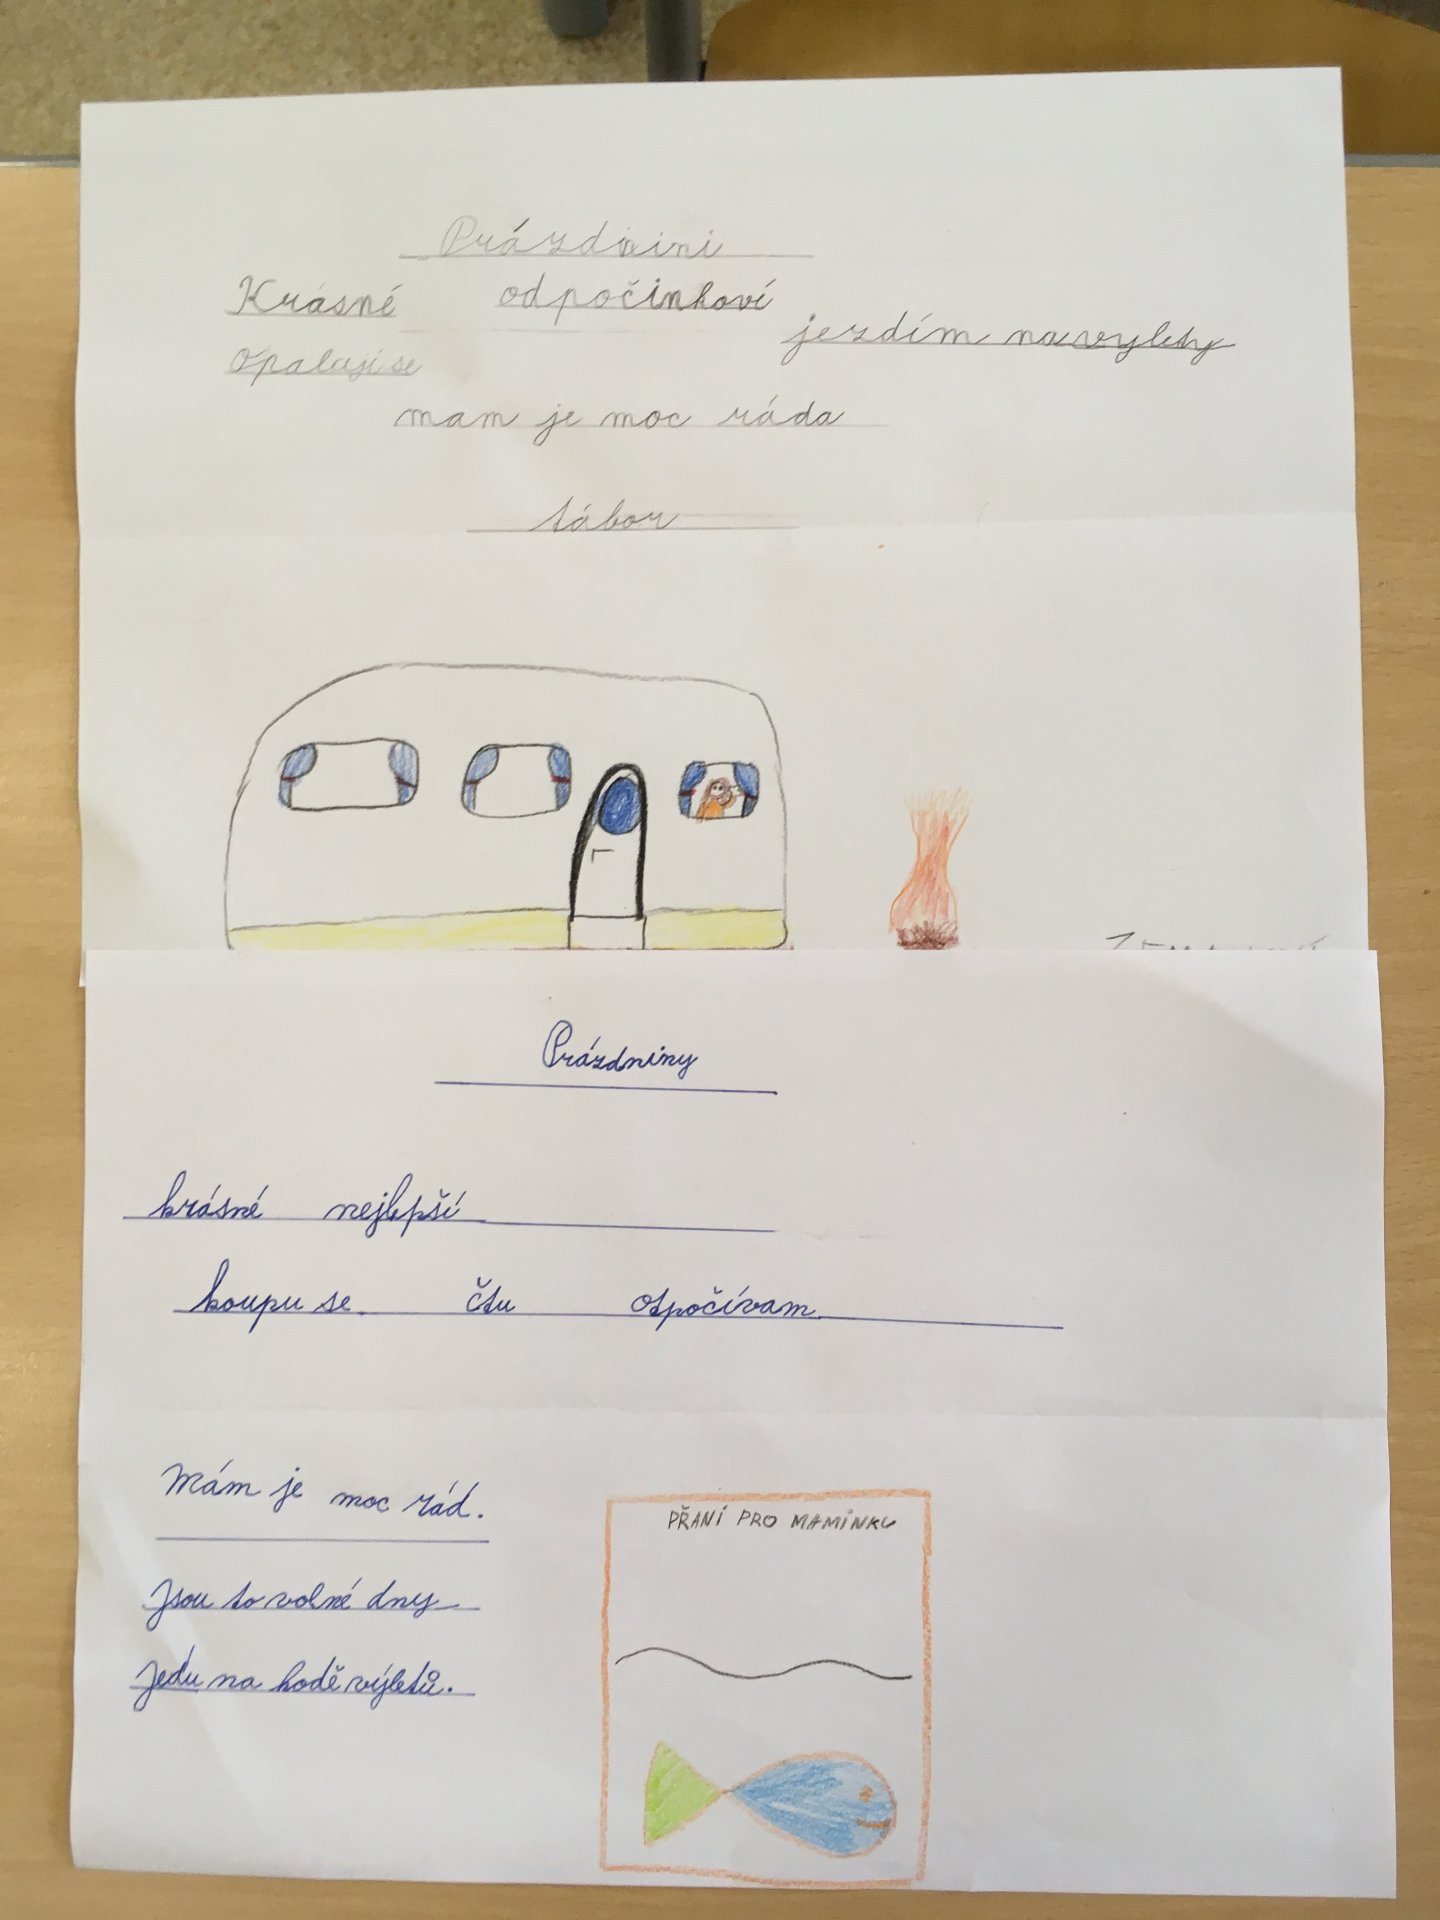 Prázdnini
Krásné odpočinkoví
jezdím na vylety
Opaluji se
mam je moc ráda
tábor
Prázdniny
krásné nejlepší
koupu se čtu otpočívam
Mám je moc rád.
Jsou to volné dny
Jedu na hodě výletů.
PŘANÍ PRO MAMINKU